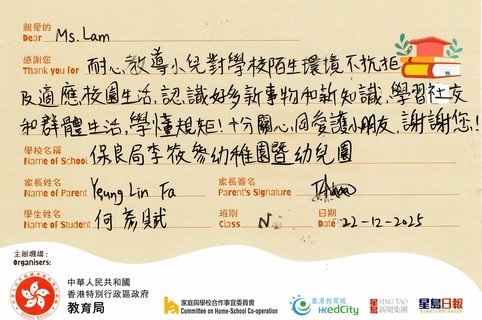 親愛的
Dear Ms. Lam
感謝您
Thank you for 耐心教導小兒對學校陌生環境不抗拒
及適應校園生活,認識好多新事物和新知識,學習社交
和群體生活,學懂規矩!十分關心,愛護小朋友,謝謝您!
學校名稱
Name of School 保良局李筱參幼稚園暨幼兒園
家長姓名
Name of Parent Yeung Lin Fa
家長簽名
Parent's Signature
學生姓名
Name of Student 何彥賦
班別
Class N
日期
Date 22-12-2025
主辦機構:
Organisers:
中華人民共和國
香港特別行政區政府
教育局
家庭與學校合作事宜委員會
Committee on Home-School Co-operation
香港教育城
HKedCity
星島 SING TAO
新聞集團
星島日報